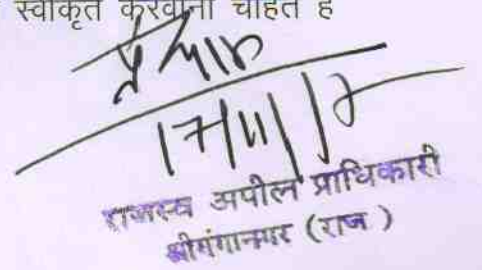 स्वीकृत करवाना चाहते है
17/11/18
राजस्व अपील प्राधिकारी
श्रीगंगानगर (राज )